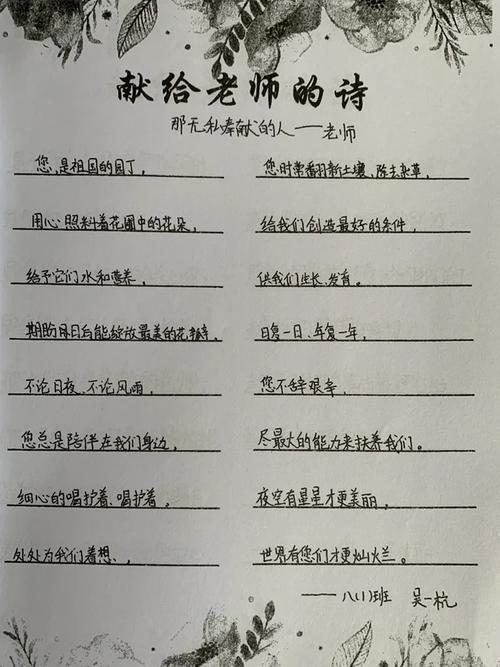 献给老师的诗
那无私奉献的人——老师
您,是祖国的园丁,
用心照料着花圃中的花朵,
给予它们水和营养,
期盼日后能绽放最美的花瓣,
不论日夜、不论风雨,
您总是陪伴在我们身边,
细心的喝护着、喝护着,
处处为我们着想,
您时常翻新土壤,除去杂草,
给我们创造最好的条件,
供我们生长、发育。
日复一日、年复一年,
您不辞艰辛,
尽最大的能力来扶养我们。
夜空有星星才更美丽,
世界有您们才更灿烂。
——八(1)班 吴一杭